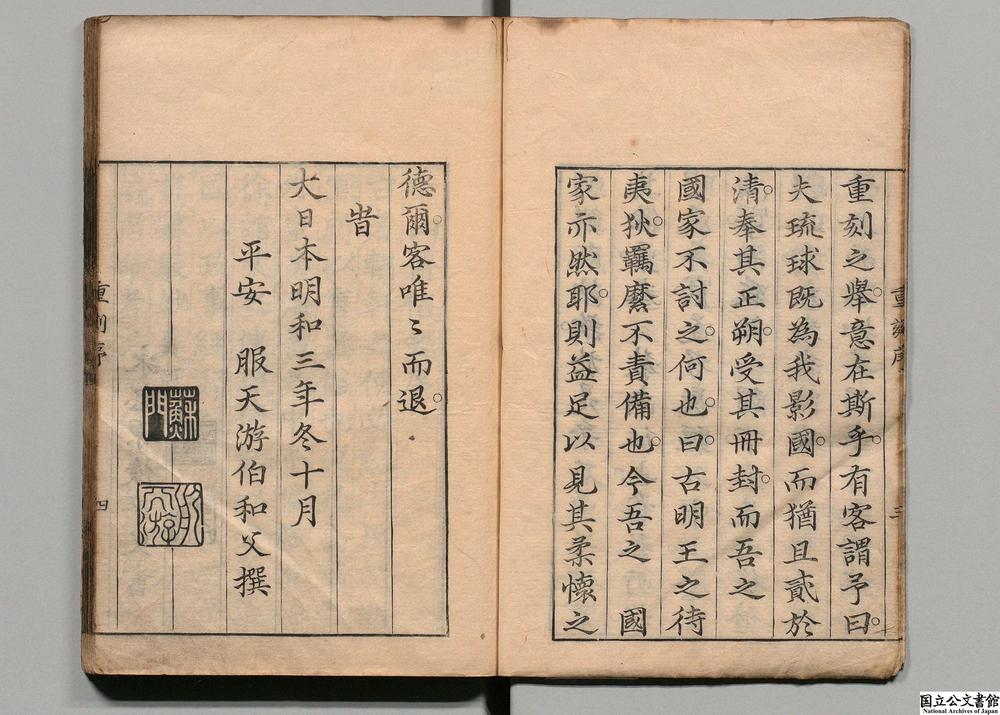 重刻之舉。意在斯乎。有客謂予曰。
夫琉球既為我影國。而猶且貳於
清。奉其正朔。受其冊封。而吾之
國家不討之。何也。曰。古明王之待
夷狄。羈縻不責備也。今吾之　國
家亦然耶。則益足以見其柔懷之
重刻序
三
德爾。客唯〻而退。
旹
大日本明和三年冬十月
平安　服天游伯和父撰
蘇門
服天游
重刻序
四
国立公文書館
National Archives of Japan